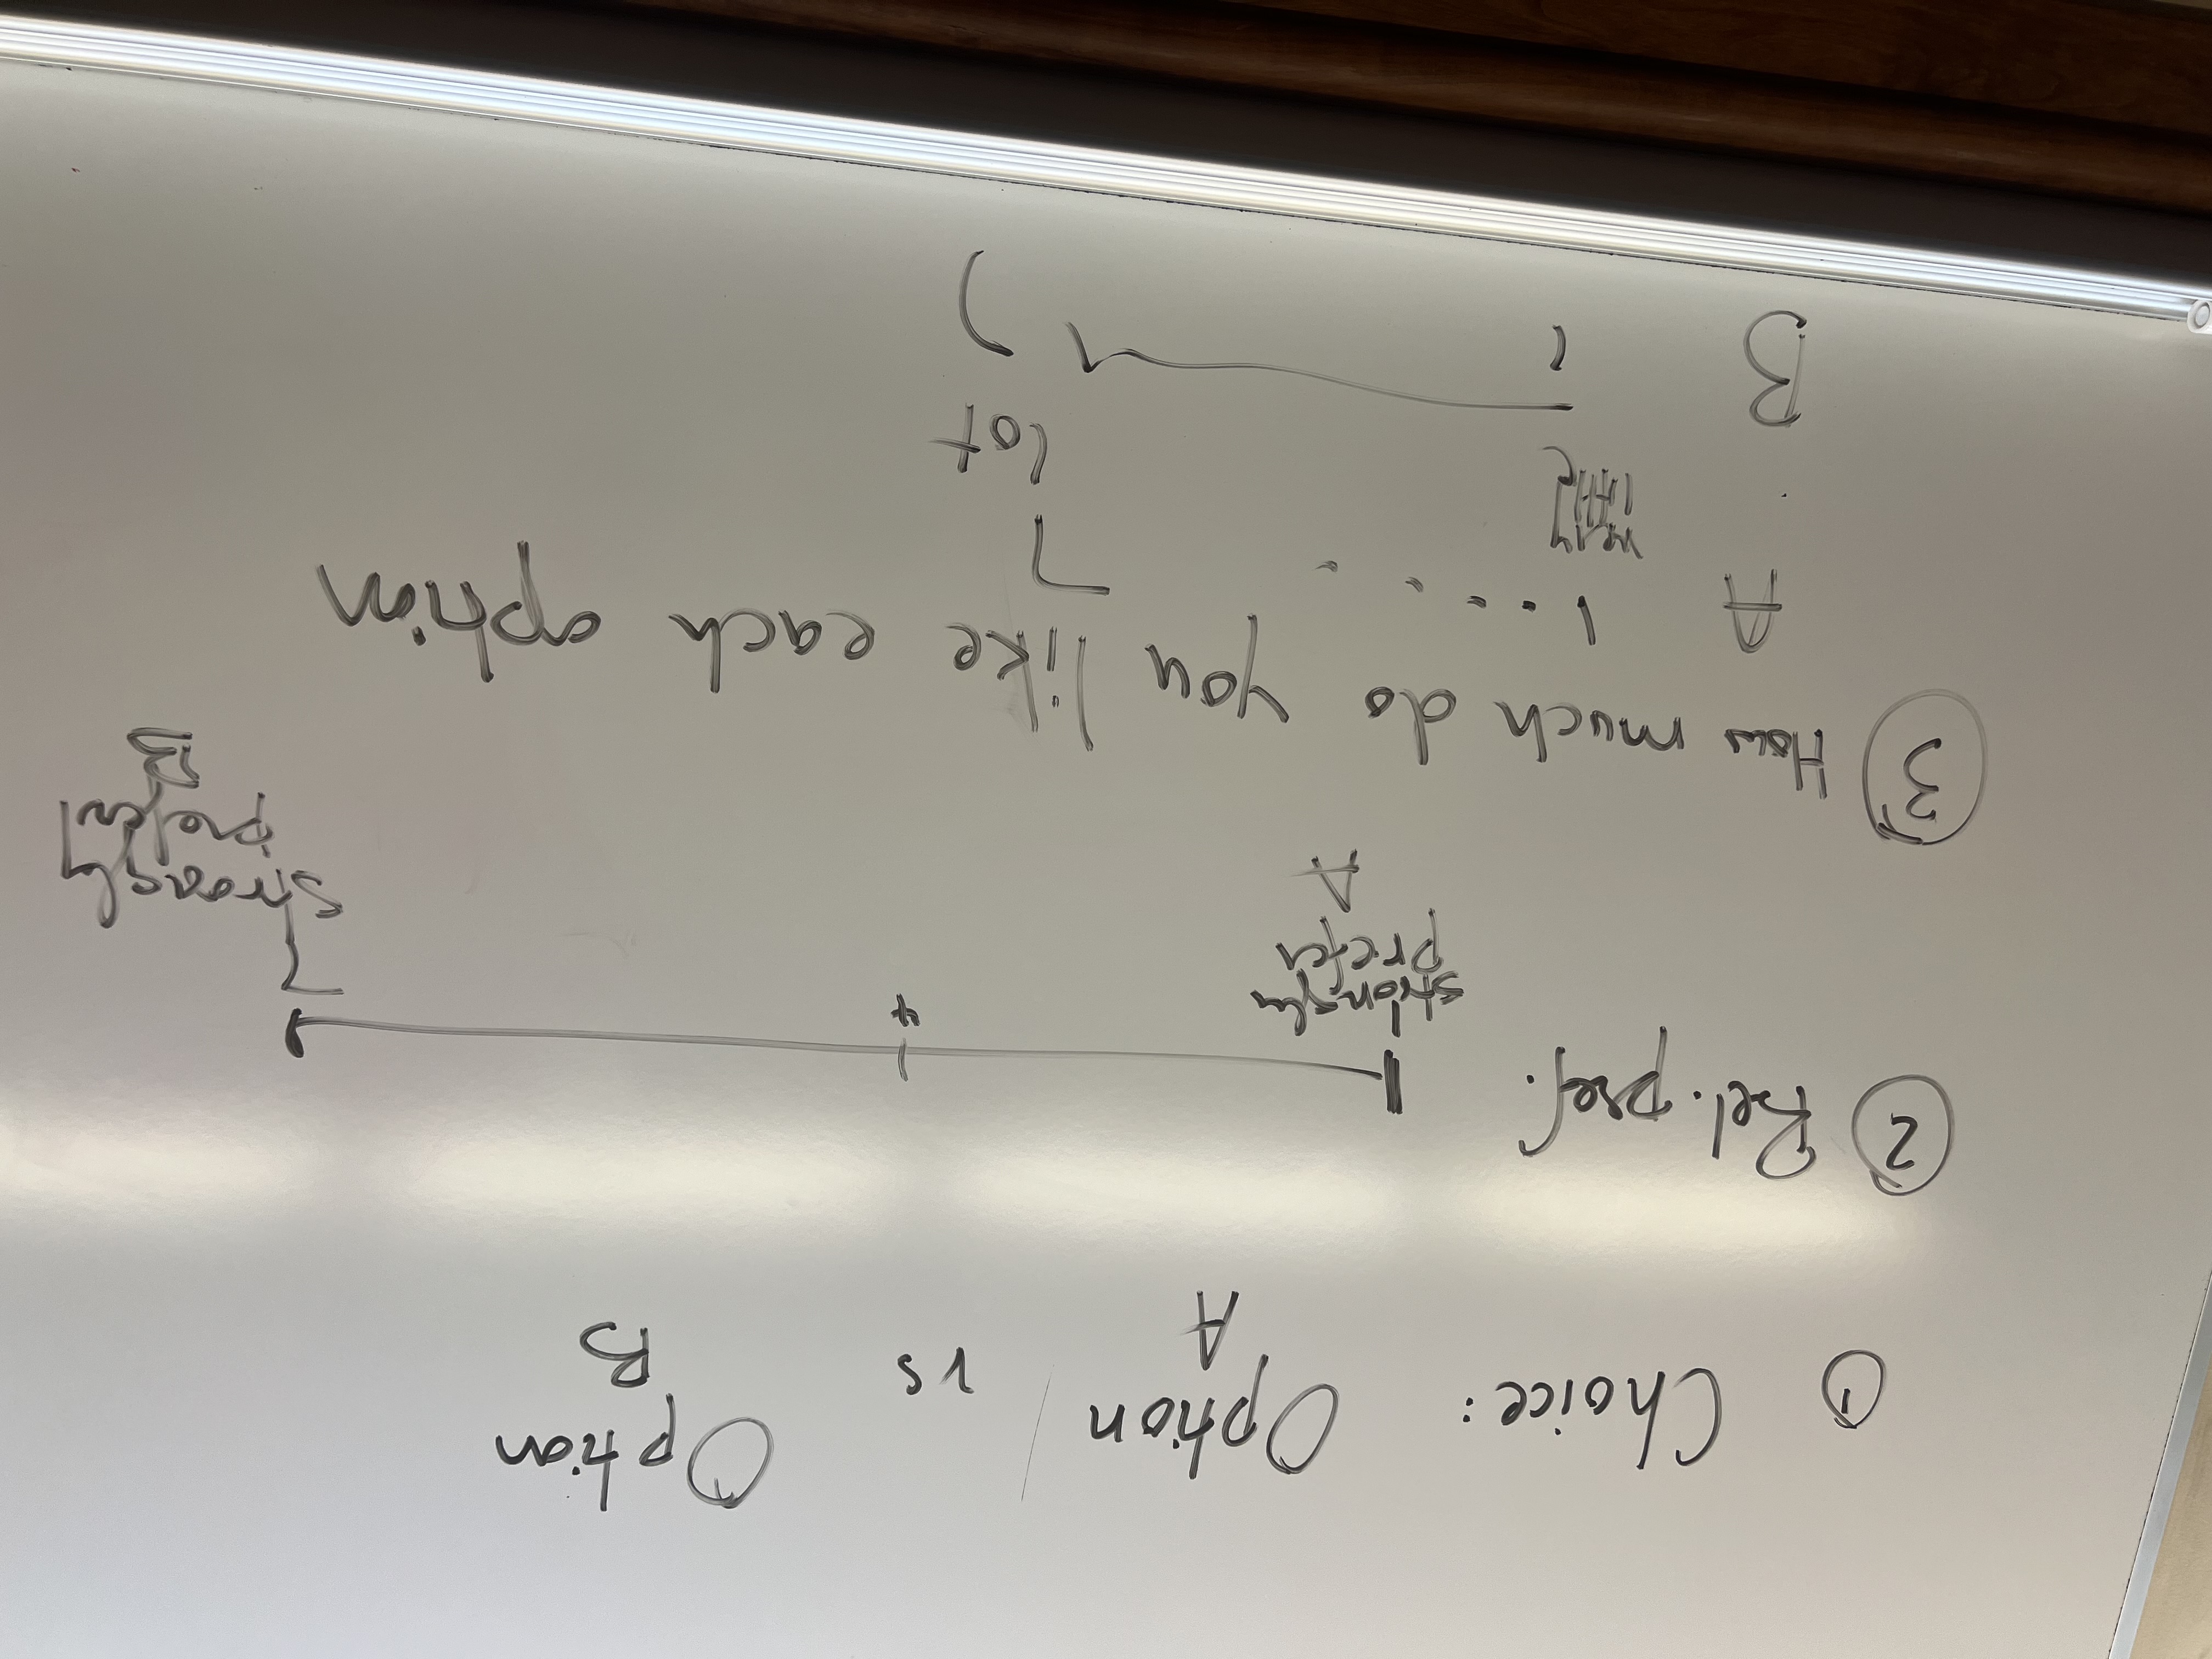 ① Choice: Option A vs Option B
② Rel. pref.
1 4 7
strongly prefer A
strongly prefer B
③ How much do you like each option
A 1 . . . . 7
very little
lot
B 1 7